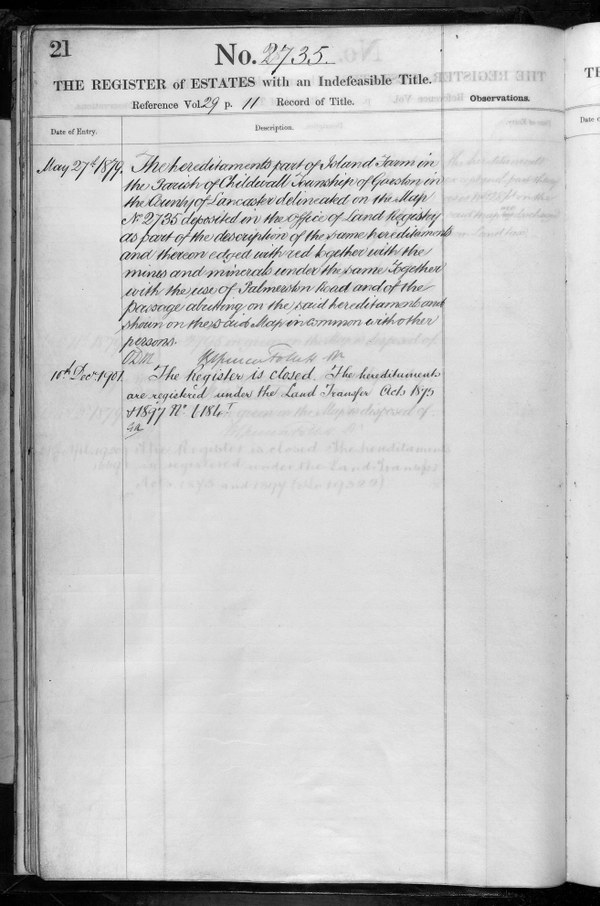 21
No. 2735.
THE REGISTER of ESTATES with an Indefeasible Title.
Reference Vol. 29 p. 11 Record of Title.
Observations.
Date of Entry.
Description.
May 27th 1879.
The hereditaments part of Island Farm in
the Parish of Childwall Township of Garston in
the County of Lancaster delineated on the Map
No 2735 deposited in the Office of Land Registry
as part of the description of the same hereditaments
and thereon edged with red together with the
mines and minerals under the same Together
with the use of Palmerston Road and of the
passage abutting on the said hereditaments and
shewn on the said Map in common with other
persons.
10th Decr 1901.
The Register is closed. The hereditaments
are registered under the Land Transfer Acts 1875
& 1897 No